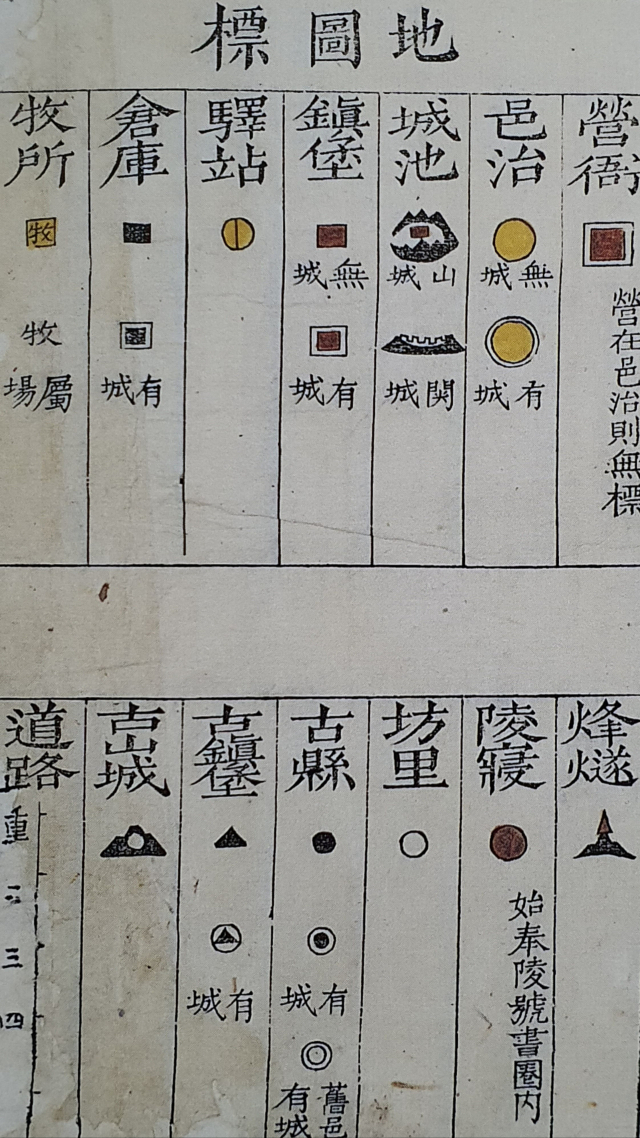 地圖標
營衙
營在邑治則無標
邑治
無城
有城
城池
山城
関城
鎭堡
無城
有城
驛站
倉庫
有城
牧所
牧
牧
屬場
烽燧
陵寢
始奉陵號書圈内
坊里
古縣
有城
舊邑
有城
古鎭堡
有城
古山城
道路
三
四